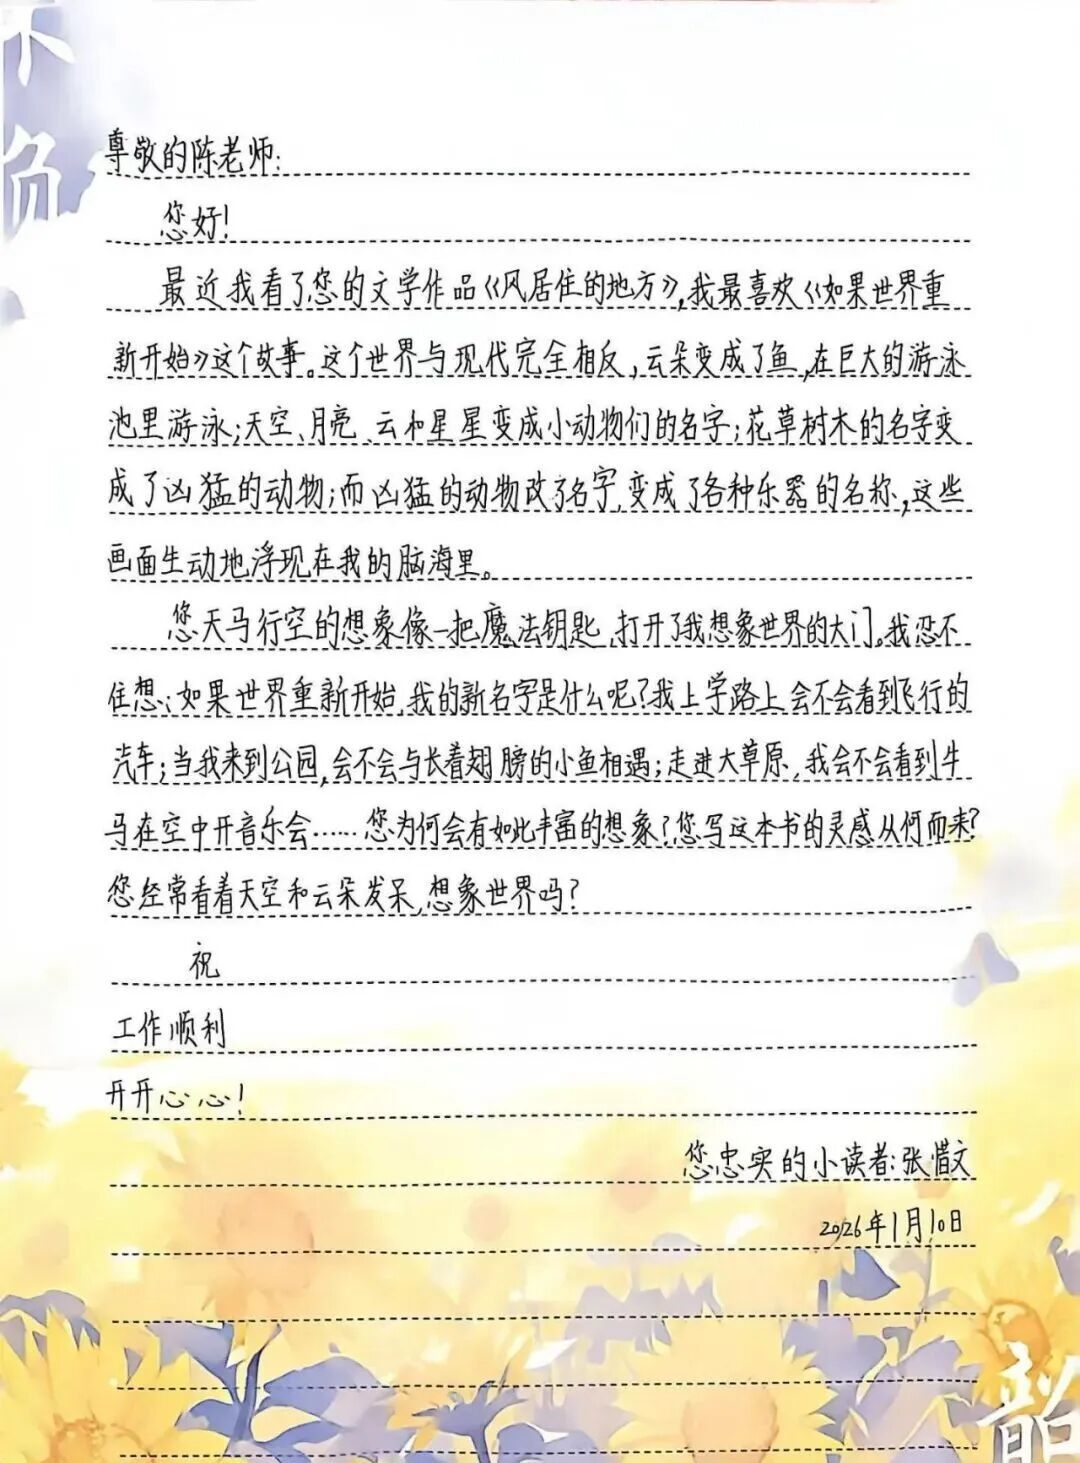 不
负
尊敬的陈老师:
您好!
最近我看了您的文学作品《风居住的地方》,我最喜欢《如果世界重
新开始》这个故事。这个世界与现代完全相反,云朵变成了鱼,在巨大的游泳
池里游泳;天空、月亮、云和星星变成小动物们的名字;花草树木的名字变
成了凶猛的动物;而凶猛的动物改了名字,变成了各种乐器的名称,这些
画面生动地浮现在我的脑海里。
您天马行空的想象像一把魔法钥匙,打开了我想象世界的大门。我忍不
住想:如果世界重新开始,我的新名字是什么呢?我上学路上会不会看到飞行的
汽车;当我来到公园,会不会与长着翅膀的小鱼相遇;走进大草原,我会不会看到牛
马在空中开音乐会……您为何会有如此丰富的想象?您写这本书的灵感从何而来?
您经常看着天空和云朵发呆,想象世界吗?
祝
工作顺利
开开心心!
您忠实的小读者:张惜文
2026年1月10日
韶